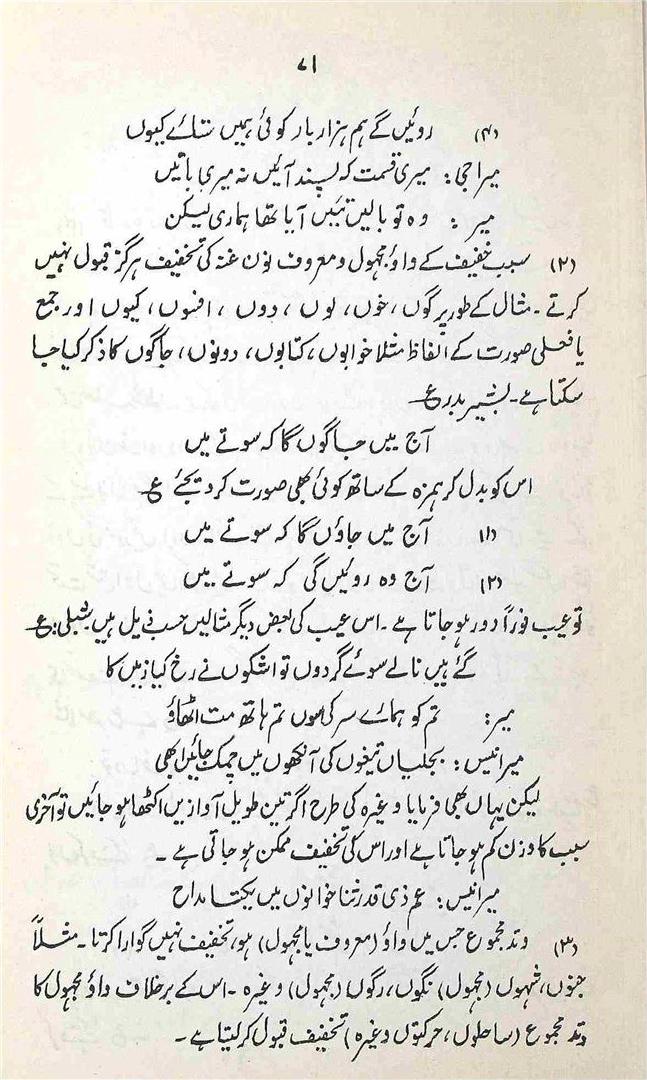 ۷۱
(۴) روئیں گے ہم ہزار بار کوئی ہمیں ستائے کیوں
میراجی: میری قسمت کہ پسند آئیں نہ میری باتیں
میر: وہ تو بالیں تئیں آیا تھا ہماری لیکن
(۲) سبب خفیف کے واؤ مجہول و معروف نون غنہ کی تخفیف ہرگز قبول نہیں
کرتے۔ مثال کے طور پر گوں، خوں، لوں، دوں، افسوں، کیوں اور جمع
یا فعلی صورت کے الفاظ مثلاً خوابوں، کتابوں، دونوں، جاگوں کا ذکر کیا جا
سکتا ہے۔ بشیر بدر ع
آج میں جاگوں گا کہ سوتے میں
اس کو بدل کر ہمزہ کے ساتھ کوئی بھی صورت کر دیجئے ع
(۱) آج میں جاؤں گا کہ سوتے میں
(۲) آج وہ روئیں گی کہ سوتے میں
تو عیب فوراً دور ہو جاتا ہے۔ اس عیب کی بعض دیگر مثالیں حسب ذیل ہیں شبلی: ع
گئے ہیں نالے سوئے گردوں تو اشکوں نے رخ کیا زمیں کا
میر: تم کو ہمارے سر کی سوں تم ہاتھ مت اٹھاؤ
میر انیس: بجلیاں تیغوں کی آنکھوں میں چمک جائیں ابھی
لیکن یہاں بھی فرمایا وغیرہ کی طرح اگر تین طویل آوازیں اکٹھا ہو جائیں تو آخری
سبب کا وزن کم ہو جاتا ہے اور اس کی تخفیف ممکن ہو جاتی ہے۔
میر انیس: عم ذی قدر ثنا خوانوں میں یکتا مداح
(۳) وتد مجموع جس میں واؤ (معروف یا مجہول) ہو، تخفیف نہیں گوارا کرتا۔ مثلاً
جنوں، شہوں (مجہول) نگوں، رگوں (مجہول) وغیرہ۔ اس کے برخلاف واؤ مجہول کا
وتد مجموع (ساحلوں، حرکتوں وغیرہ) تخفیف قبول کر لیتا ہے۔